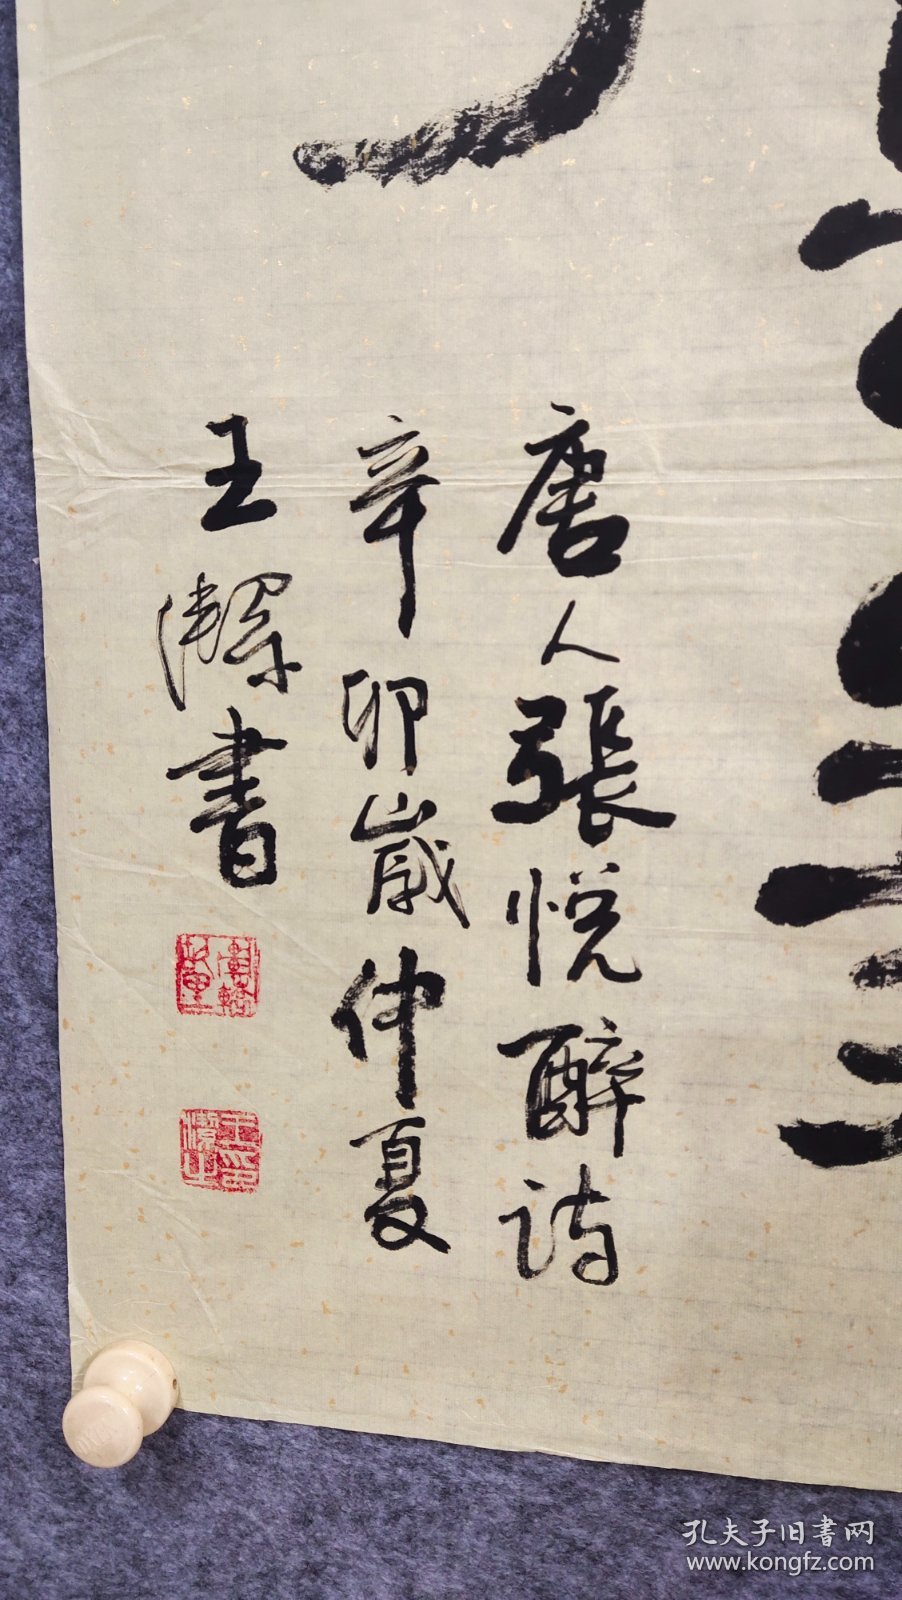 唐人張悦醉诗
辛卯歲仲夏
王潔書
孔夫子旧書网
www.kongfz.com